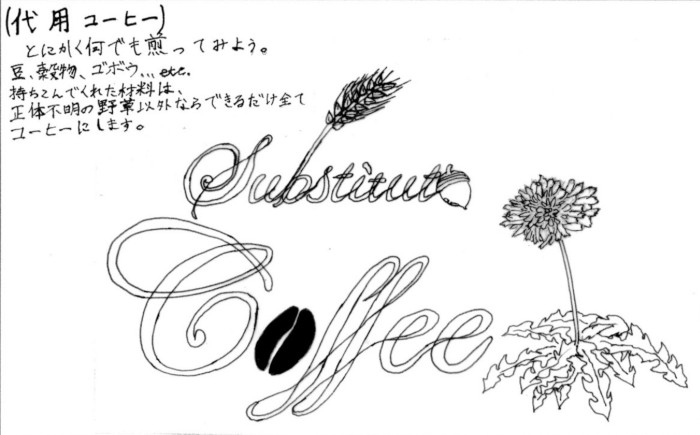 (代用コーヒー)
とにかく何でも煎ってみよう。
豆、穀物、ゴボウ、、、etc.
持ちこんでくれた材料は、
正体不明の野草以外ならできるだけ全て
コーヒーにします。
Substitute
Coffee